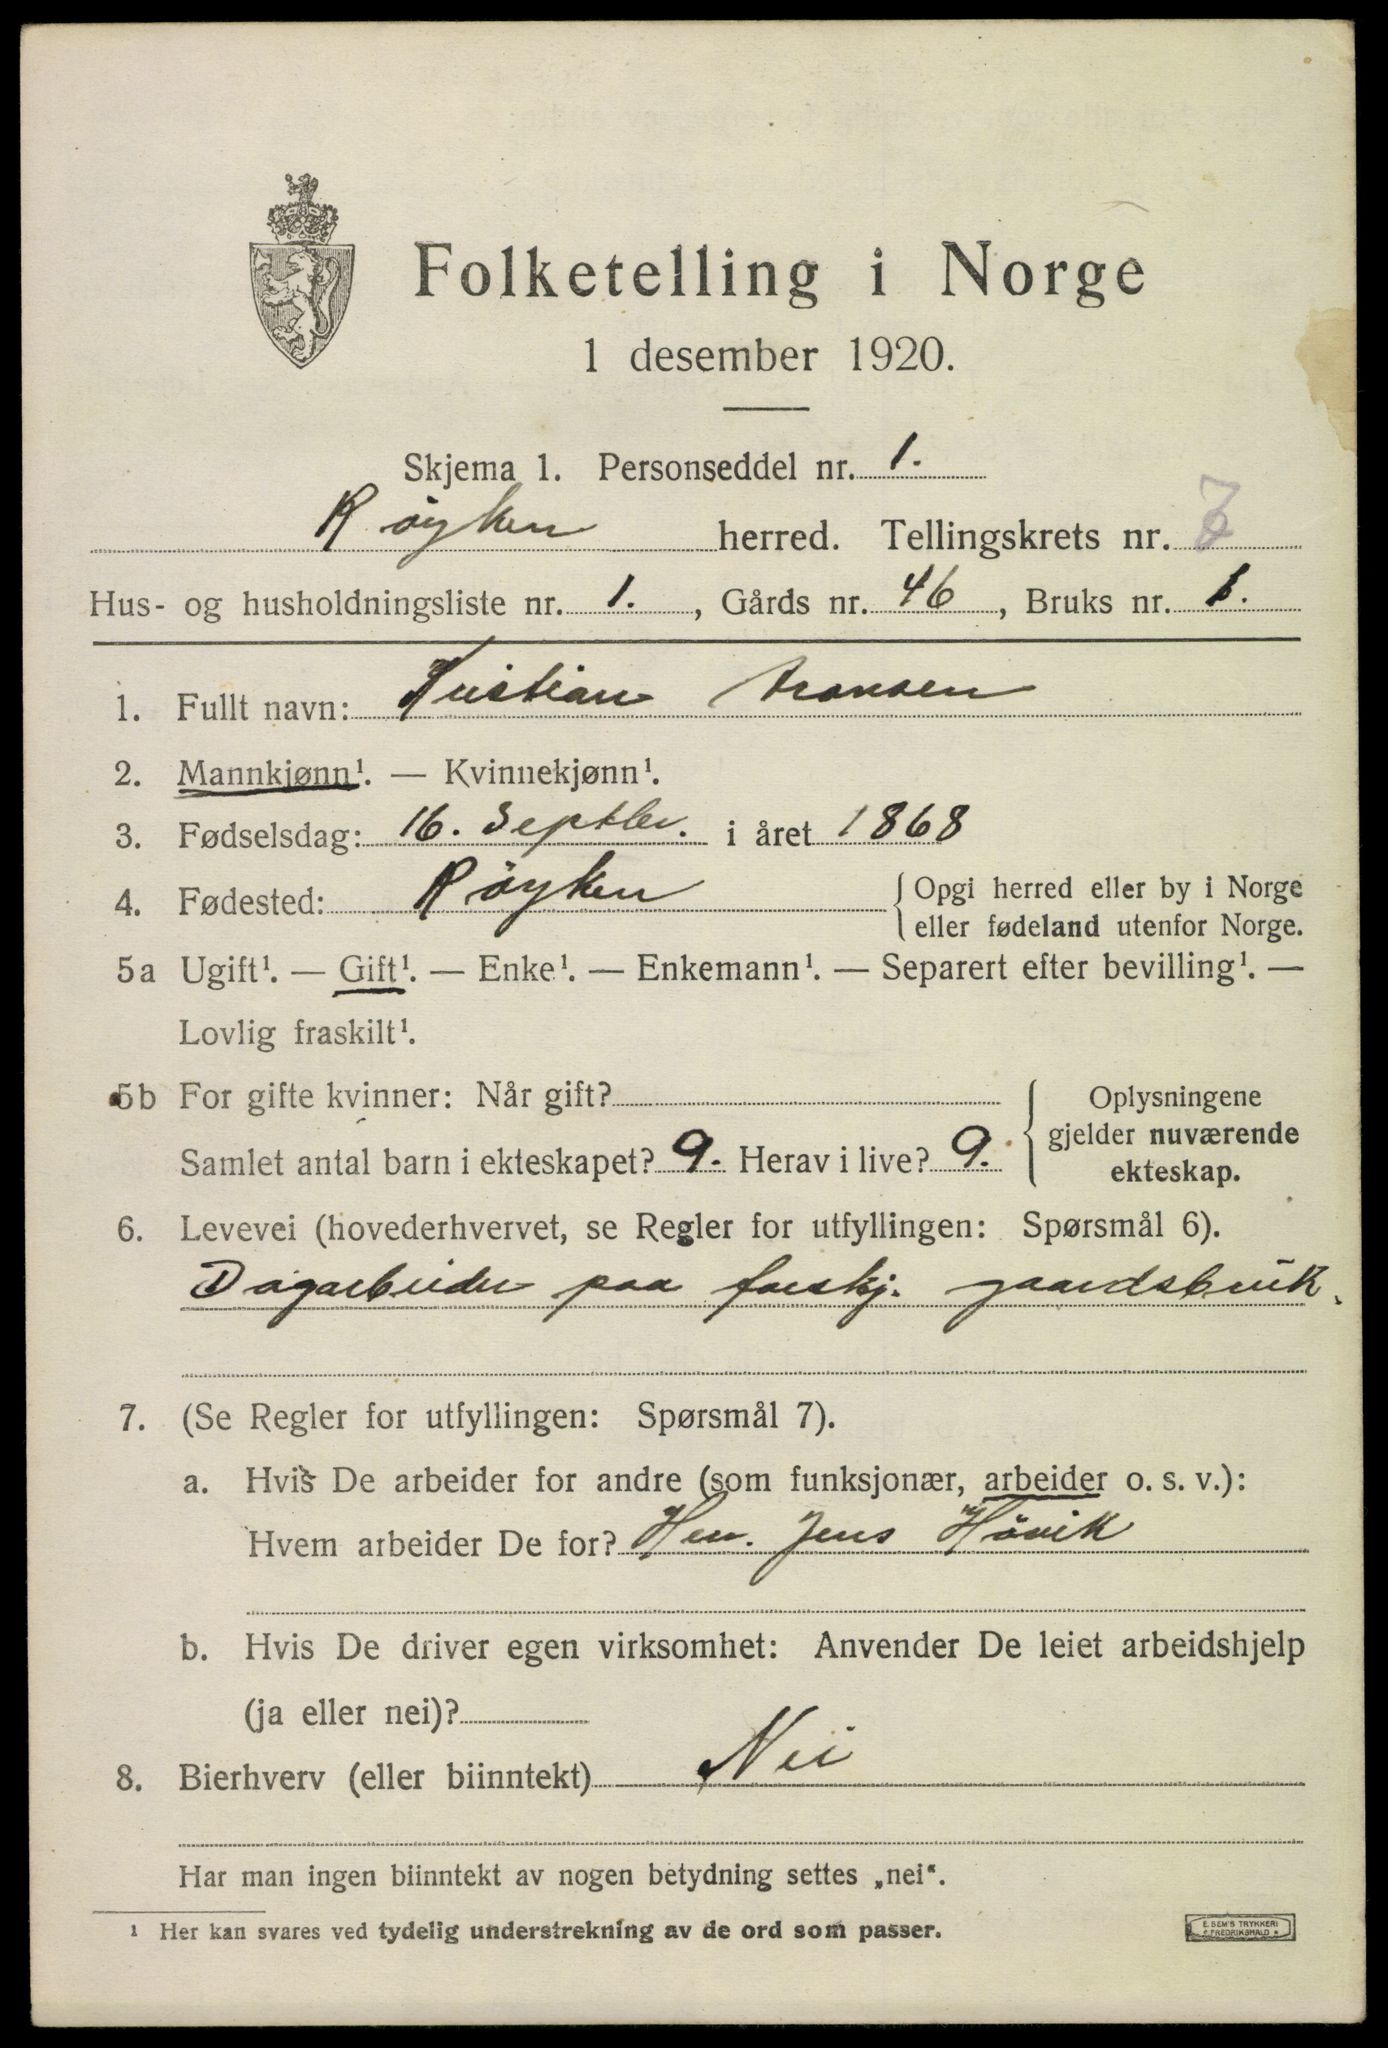 Folketelling i Norge
1 desember 1920.
Skjema 1. Personseddel nr. 1.
Røyken herred. Tellingskrets nr. 7
Hus- og husholdningsliste nr. 1., Gårds nr. 46, Bruks nr. 1.
1. Fullt navn: Kristian Aronsen
2. Mannkjønn¹. — Kvinnekjønn¹.
3. Fødselsdag: 16. Septbr. i året 1868
4. Fødested: Røyken { Opgi herred eller by i Norge
eller fødeland utenfor Norge.
5a Ugift¹. — Gift¹. — Enke¹. — Enkemann¹. — Separert efter bevilling¹. —
Lovlig fraskilt¹.
5b For gifte kvinner: Når gift?
Samlet antal barn i ekteskapet? 9. Herav i live? 9.
Oplysningene
gjelder nuværende
ekteskap.
6. Levevei (hovederhvervet, se Regler for utfyllingen: Spørsmål 6).
Dagarbeider paa forskj. gaardsbruk.
7. (Se Regler for utfyllingen: Spørsmål 7).
a. Hvis De arbeider for andre (som funksjonær, arbeider o. s. v.):
Hvem arbeider De for? Herr. Jens Hövik
b. Hvis De driver egen virksomhet: Anvender De leiet arbeidshjelp
(ja eller nei)?
8. Bierhverv (eller biinntekt) Nei
Har man ingen biinntekt av nogen betydning settes „nei“.
¹ Her kan svares ved tydelig understrekning av de ord som passer.
E. SEM'S TRYKKERI
FREDRIKSHALD